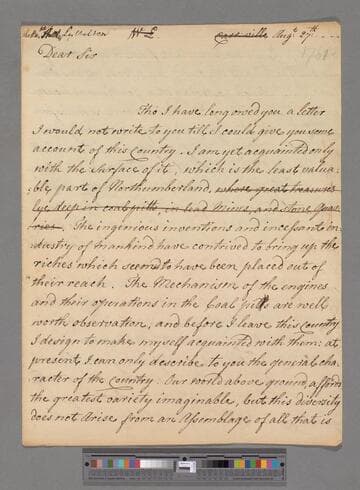 Lyttelton Cass ville Augt 27th
1758
Dear Sir
Tho I have long owed you a letter
I would not write to you till I could give you some
account of this Country. I am yet acquainted only
with the Surface of it, which is the least valua-
:ble part of Northumberland, whose great treasures
lye deep in coal pitts, in lead Mines, and Stone Quar
ries. The inginious inventions and incessant in:
:dustry of mankind have contrived to bring up the
riches which seemd to have been placed out of
their reach. The Mechanism of the engines
and their operations in the Coal pitts are well
worth observation, and before I leave this Country
I design to make myself acquainted with them: at
present I can only describe to you the general cha
racter of the Country. Our world above ground, affords
the greatest variety imaginable, but this diversity
does not Arise from an Assemblage of all that is